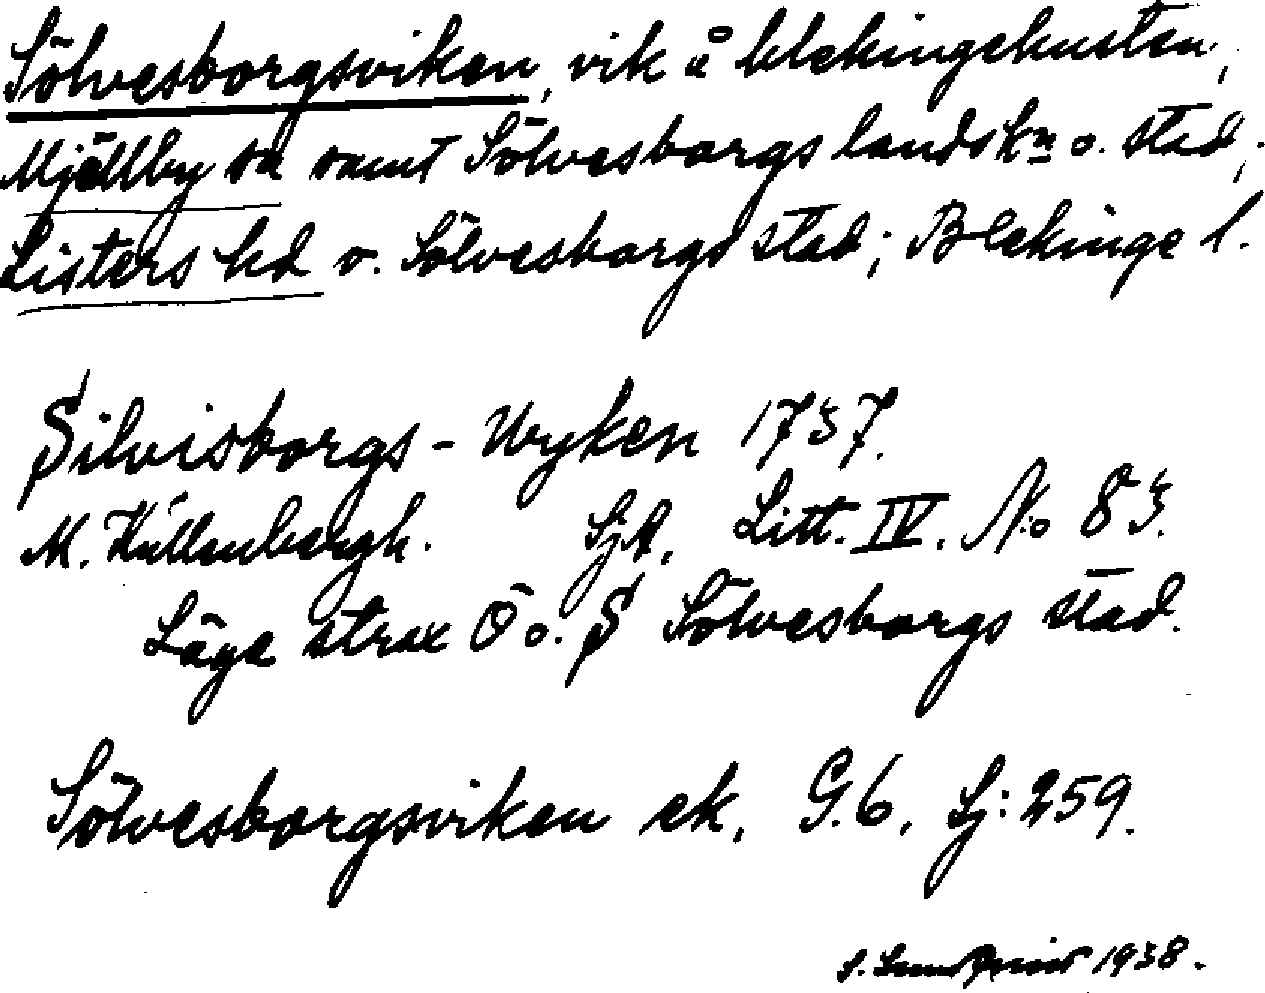 Sölvesborgsviken, vik å blekingekusten,
Mjällby sn samt Sölvesborgs landskn o. stad;
Listers hd o. Sölvesborgs stad; Blekinge l.
Silvisborgs-Wyken 1737.
M. Kullenbergh. SjA. Litt. IV. No 83.
Läge strax Ö o. S Sölvesborgs stad.
Sölvesborgsviken ek. G.6. Sj:259.
S. 1938.